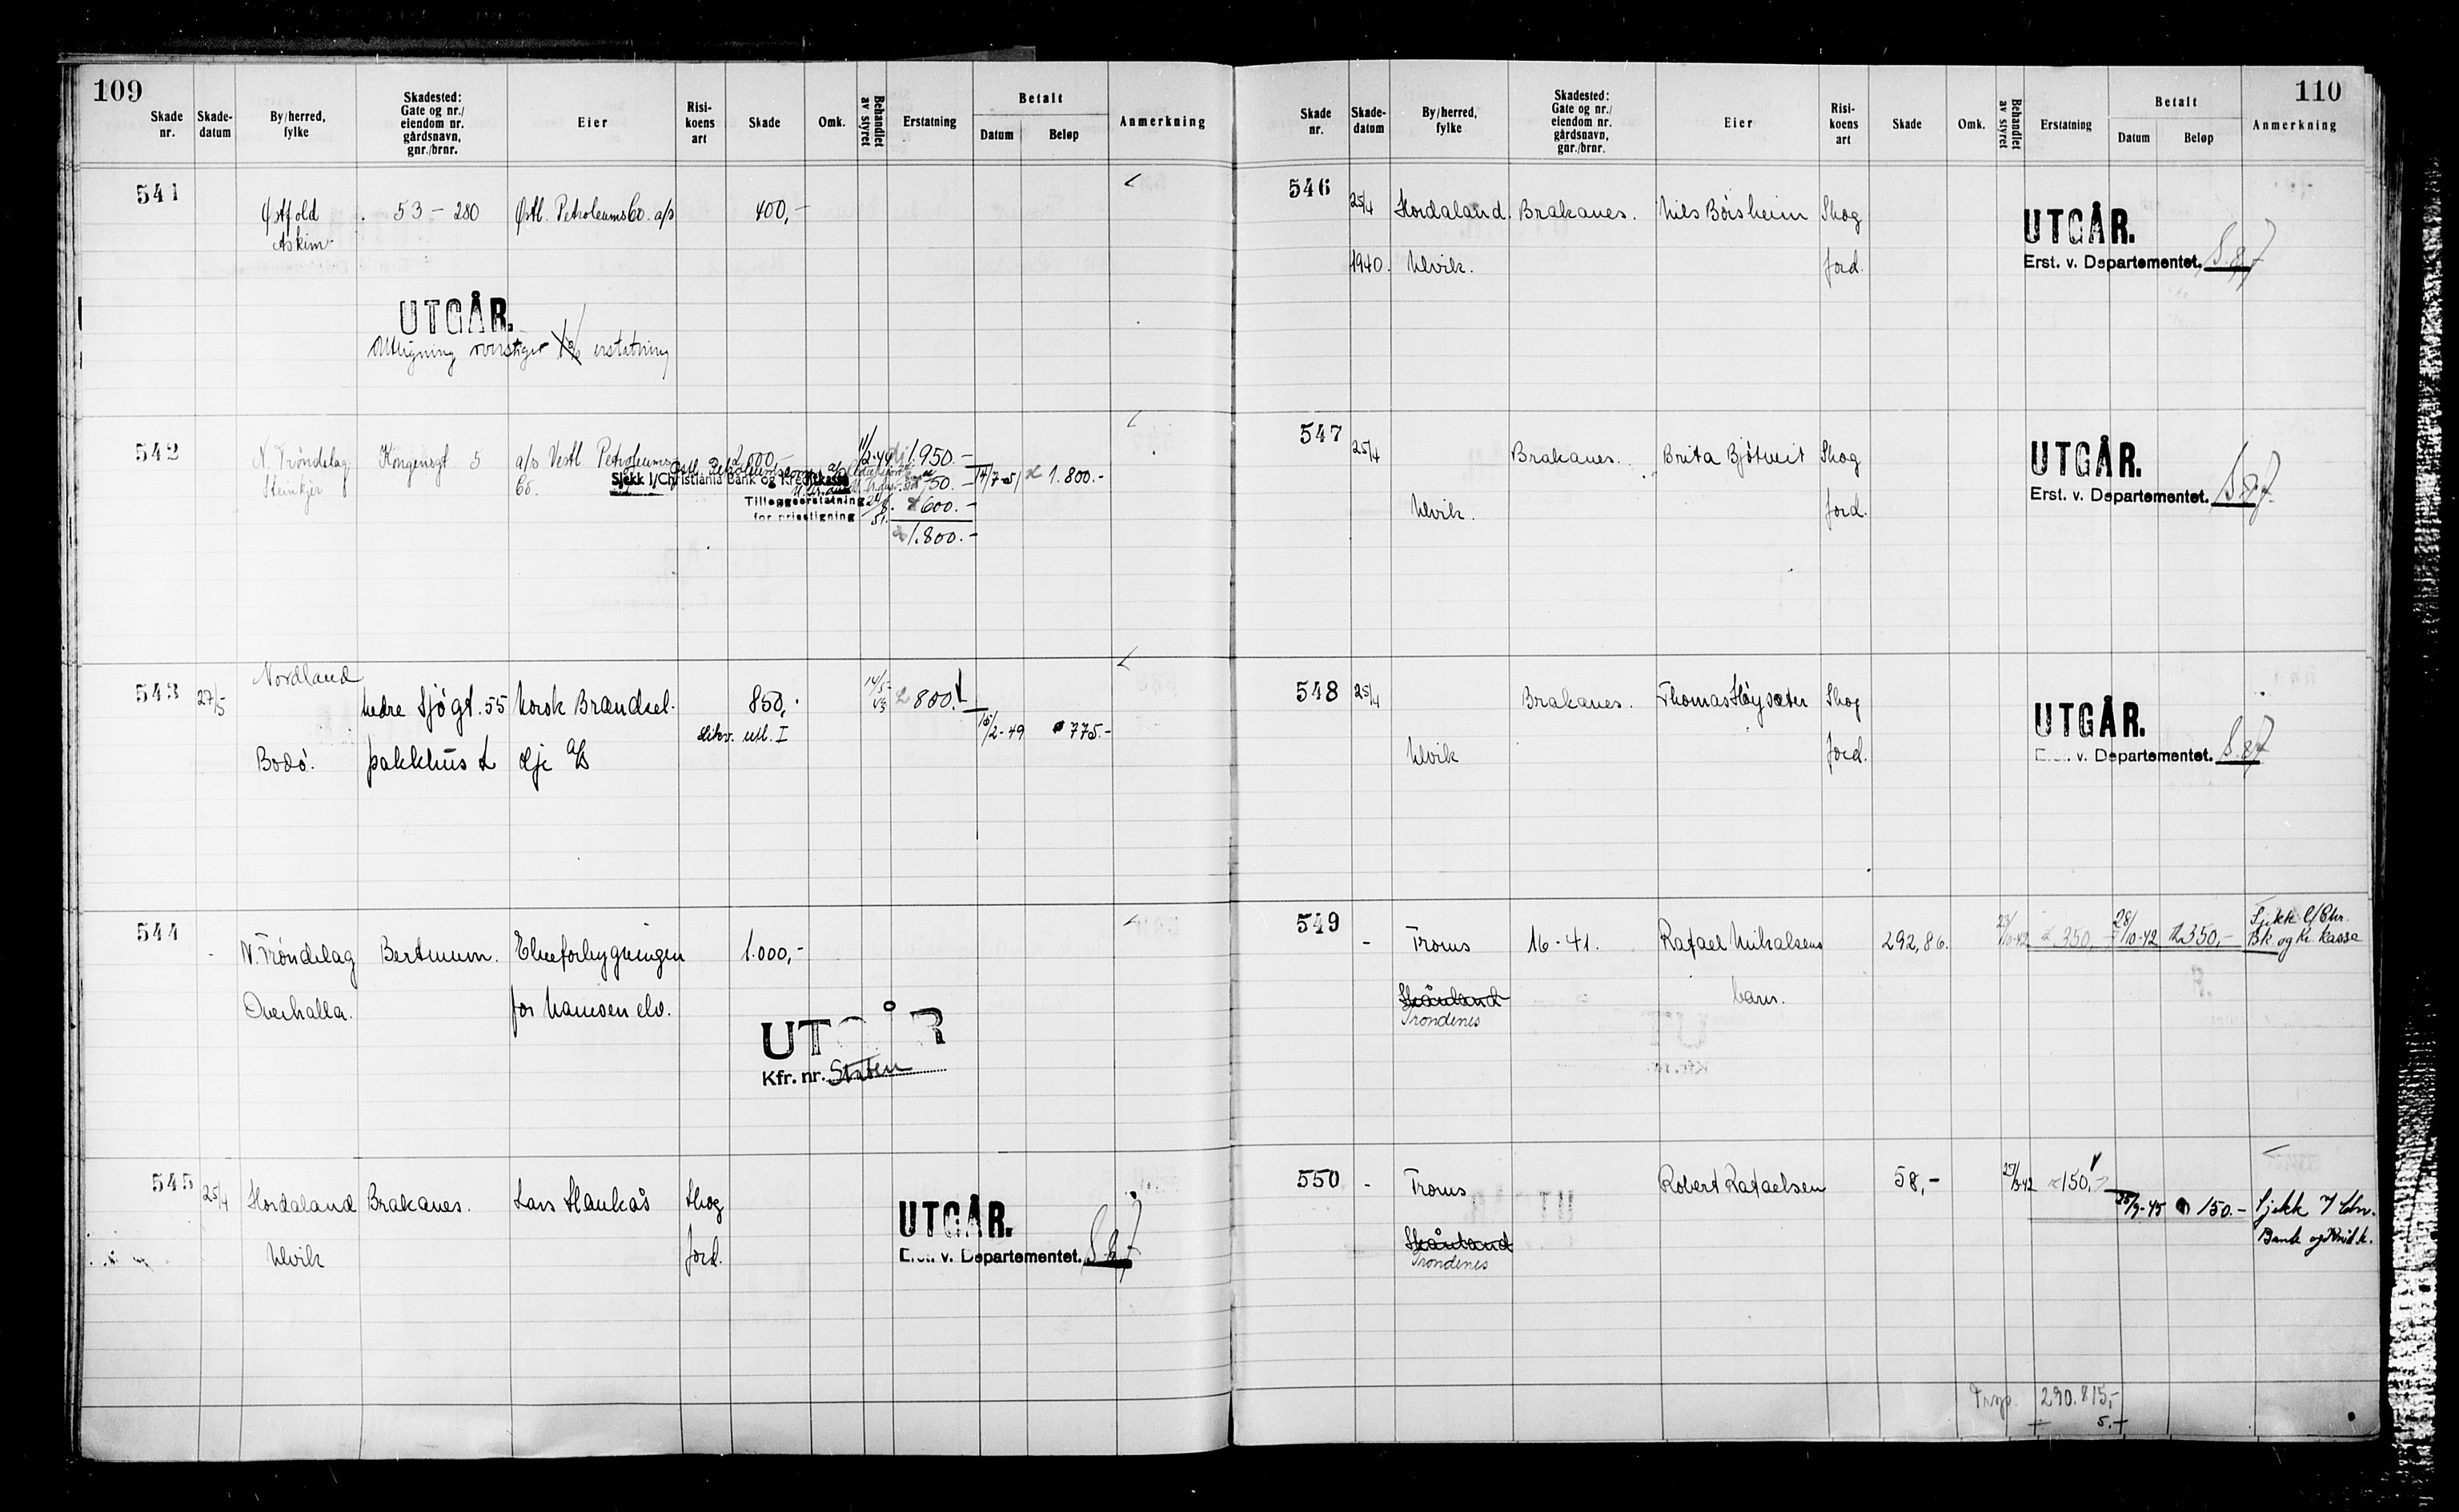 109
Skade nr.
Skade-datum
By/herred, fylke
Skadested: Gate og nr./ eiendom nr. gårdsnavn, gnr./brnr.
Eier
Risi-koens art
Skade
Omk.
Behandlet av styret
Erstatning
Betalt
Datum
Beløp
Anmerkning
541
Østfold 53 - 280 Østl. Petroleums Co. a/s 400,-
Askim
UTGÅR.
Utligning overstiger erstatning
542
N. Trøndelag Kongensgt. 5 a/s Vestl. Petroleums 2000,- 1.950.-
Steinkjer Co.
Sjekk l/Christiania Bank og Kreditkasse 14/7-51 1.800.-
Tilleggserstatning 600.-
for prisstigning
1.800.-
543 27/5
Nordland
Nedre Sjøgt. 55 Norsk Brændsel- 850,- 14/5-43 800.-
Likv. utl. I 16/2-49 775.-
Bodø. pakkhus olje a/s
544
N. Trøndelag Bertnum. Elveforbygningen 1.000,-
Overhalla. for Namsen elv.
UTGÅR
Kfr. nr. Staten
545 25/4 Hordaland Brakanes. Lars Haukås Skog
Ulvik Jord.
UTGÅR.
Erst. v. Departementet.
110
Skade nr.
Skade-datum
By/herred, fylke
Skadested: Gate og nr./ eiendom nr. gårdsnavn, gnr./brnr.
Eier
Risi-koens art
Skade
Omk.
Behandlet av styret
Erstatning
Betalt
Datum
Beløp
Anmerkning
546 25/4 Hordaland. Brakanes. Nils Børsheim Skog
1940. Ulvik. Jord.
UTGÅR.
Erst. v. Departementet.
547 25/4 Brakanes. Brita Bjøtveit Skog
Ulvik. Jord.
UTGÅR.
Erst. v. Departementet.
548 25/4 Brakanes. Thomas Høysæter Skog
Ulvik Jord.
UTGÅR.
v. Departementet.
549 - Troms 16-41. Rafael Mikalsens 292,86. 23/10-42 350,- 28/10-42 350,- Sjekk l/Chr.
Bk og Kr. kasse
Skånland barn.
Trondenes
550 - Troms Robert Rafaelsen 58,- 150,-
25/9-45 150.- Sjekk l/ Chr.
Bank og Kredit k.
Skånland
Trondenes
290.815,-
5.-